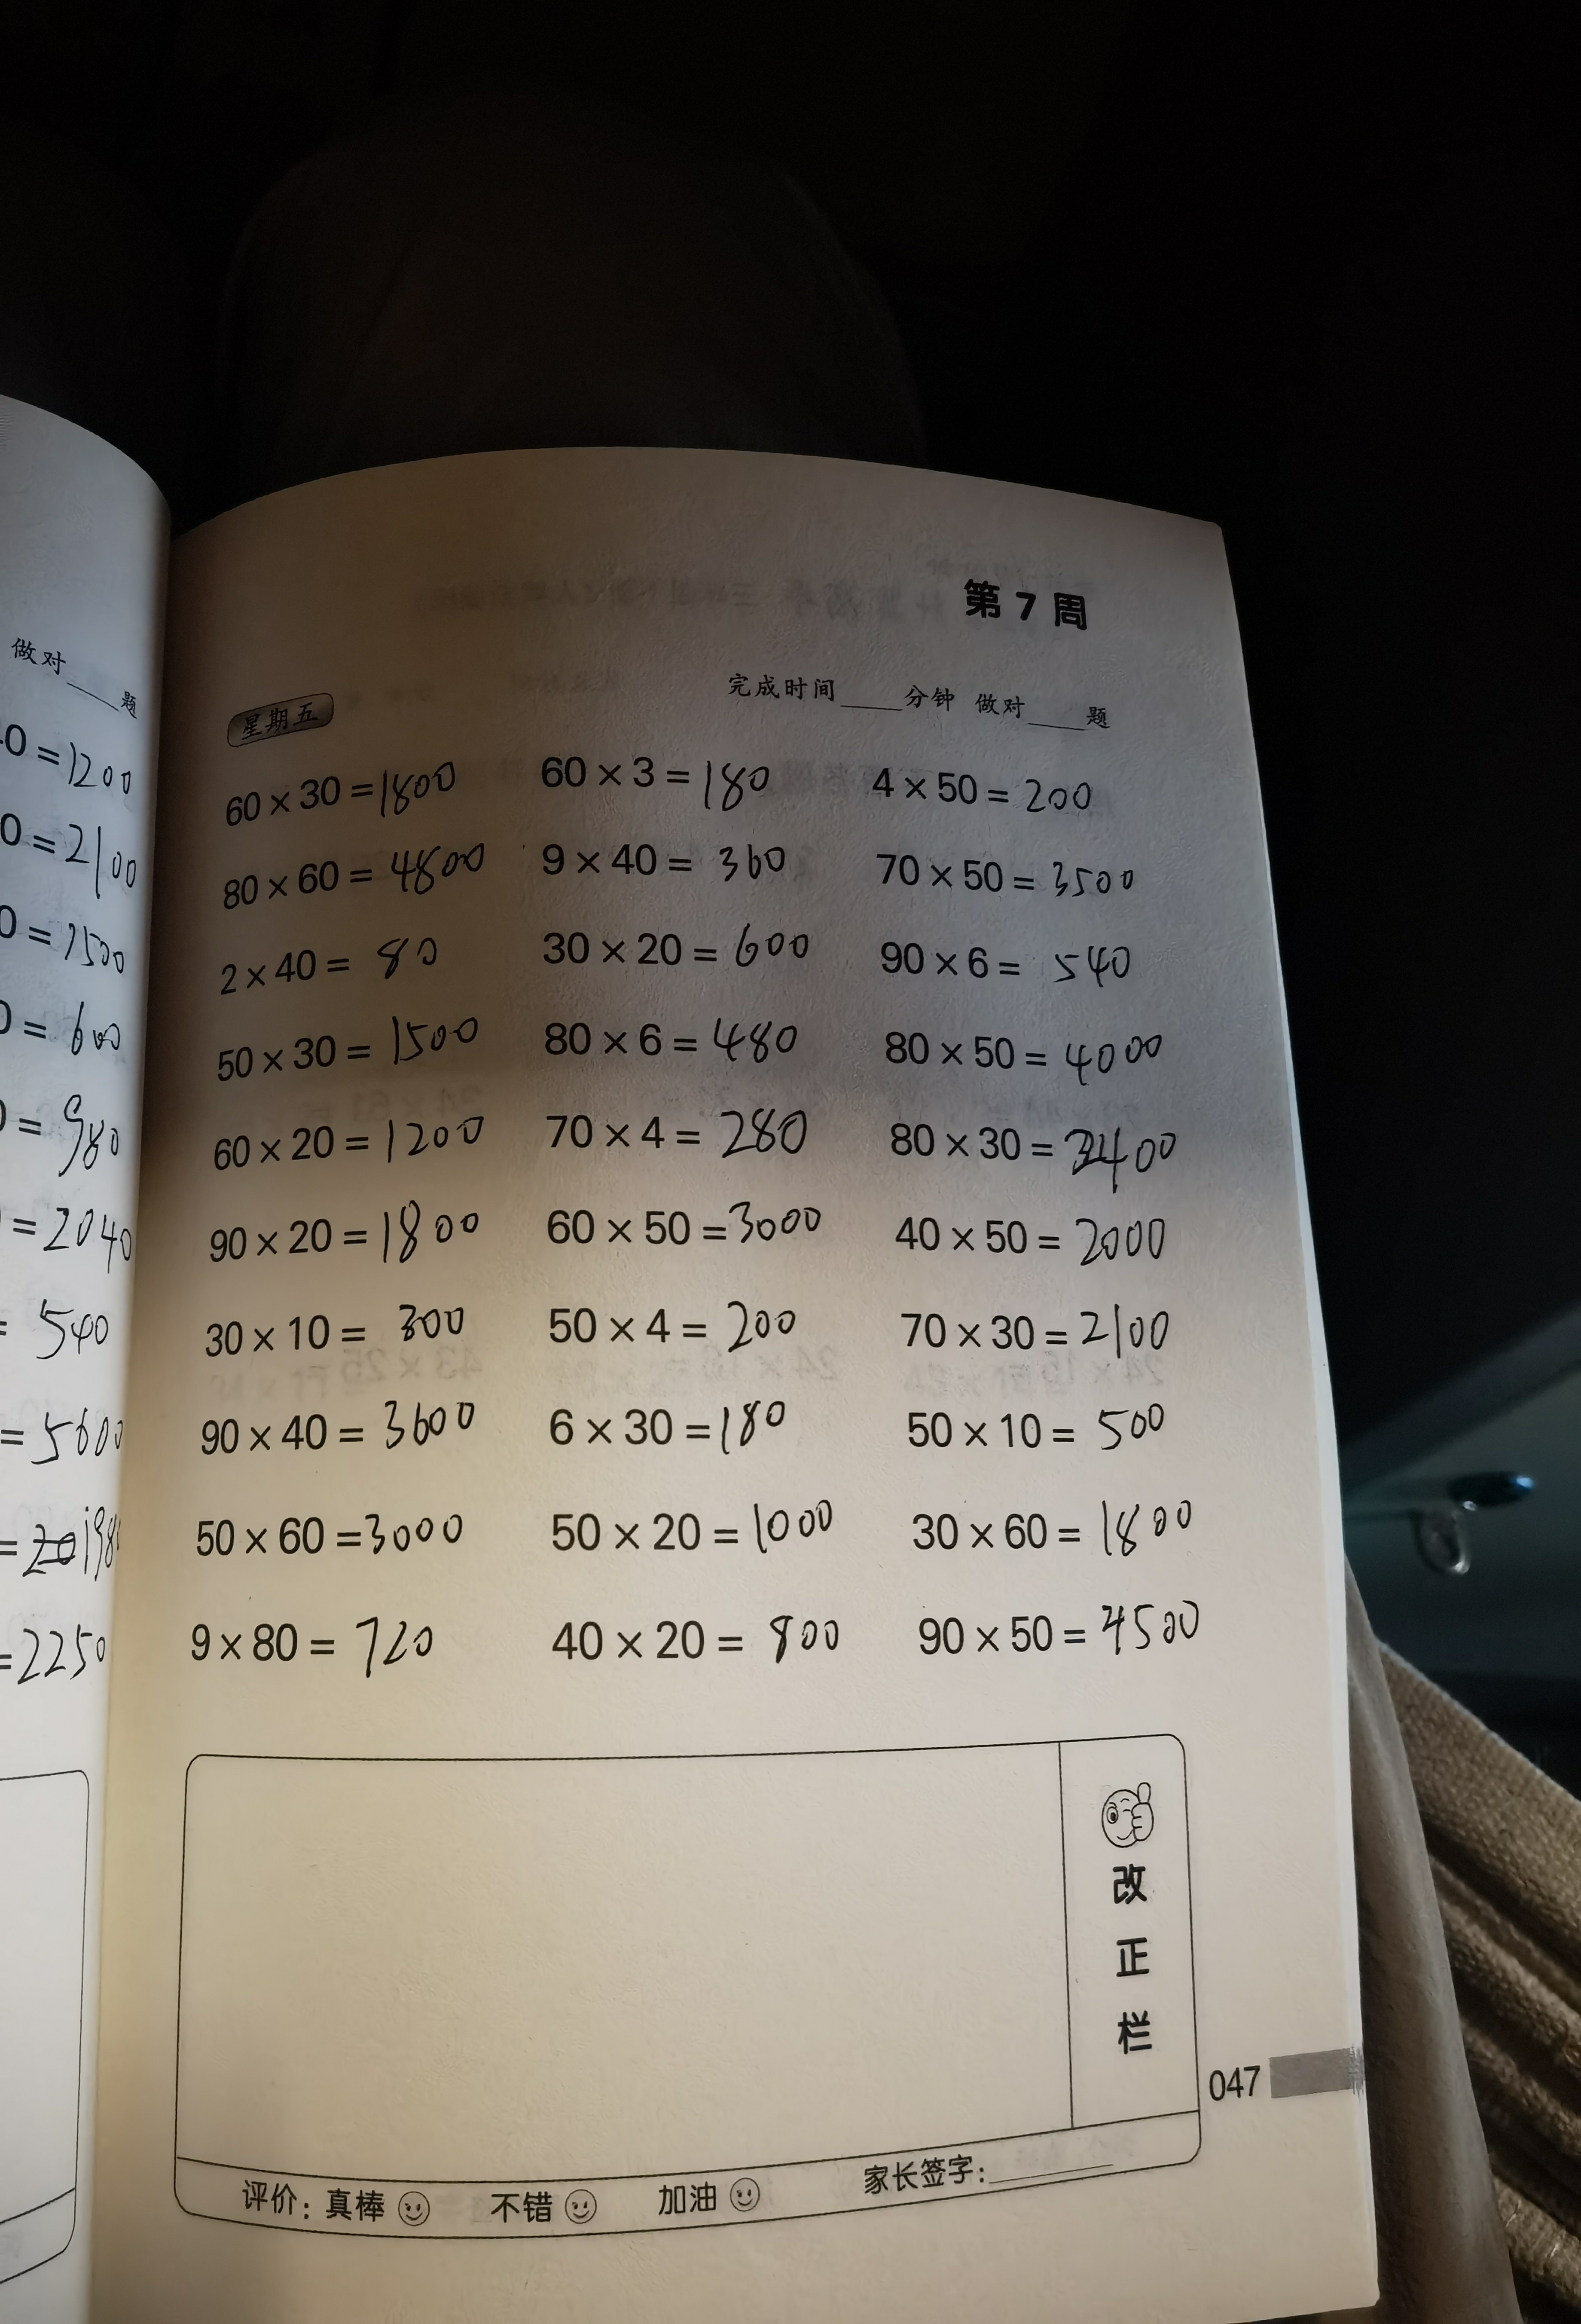 做对____题
0=1200
0=2100
0=1500
0=600
0=980
=2040
=540
=5600
=198
=2250
第7周
星期五 完成时间____分钟 做对____题
60×30=1800 60×3=180 4×50=200
80×60=4800 9×40=360 70×50=3500
2×40=80 30×20=600 90×6=540
50×30=1500 80×6=480 80×50=4000
60×20=1200 70×4=280 80×30=2400
90×20=1800 60×50=3000 40×50=2000
30×10=300 50×4=200 70×30=2100
90×40=3600 6×30=180 50×10=500
50×60=3000 50×20=1000 30×60=1800
9×80=720 40×20=800 90×50=4500
改正栏
047
评价:真棒 不错 加油 家长签字:______